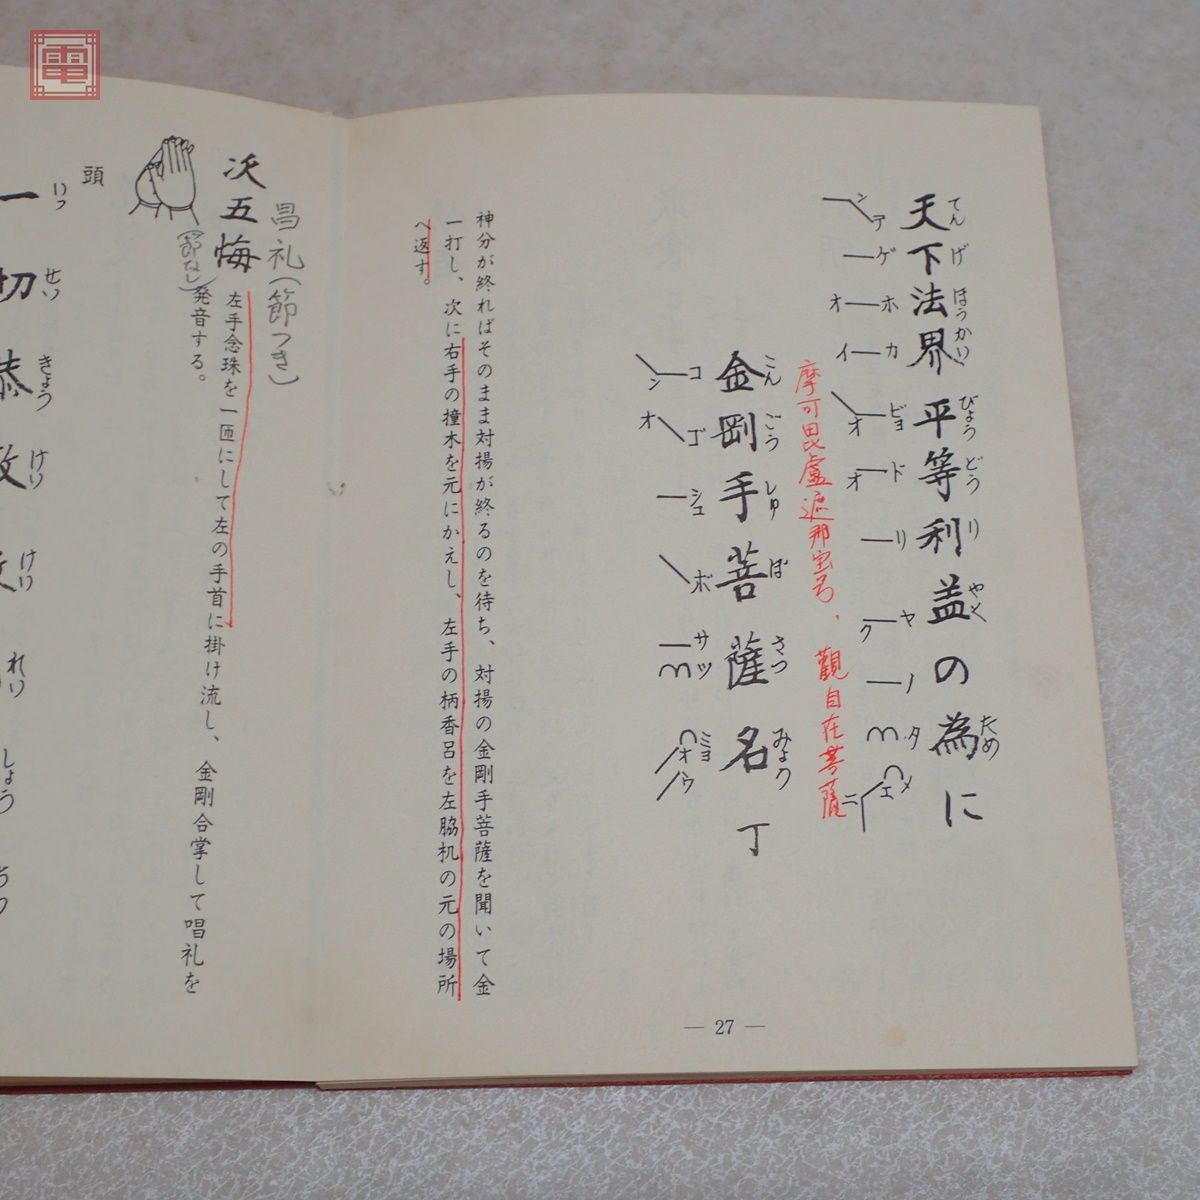 電
天下法界平等利益の為に
てんげほうかいびょうどうりやくため
ンテ ゲ ホオ カイ ビョオ ドオ リ ヤク ノ タ メエニ
摩可毘盧遮那宝号、觀自在菩薩
金剛手菩薩名丁
こんごうしゅぼさつみょう
コン ゴオ シュ ボ サツ ミョオウ
神分が終ればそのまま対揚が終るのを待ち、対揚の金剛手菩薩を聞いて金
一打し、次に右手の撞木を元にかえし、左手の柄香呂を左脇机の元の場所
へ返す。
— 27 —
昌礼(節つき)
次五悔
(節なし)
左手念珠を一匝にして左の手首に掛け流し、金剛合掌して唱礼を
発音する。
頭
いっせいきょうけいけいれいしょう
一切恭敬